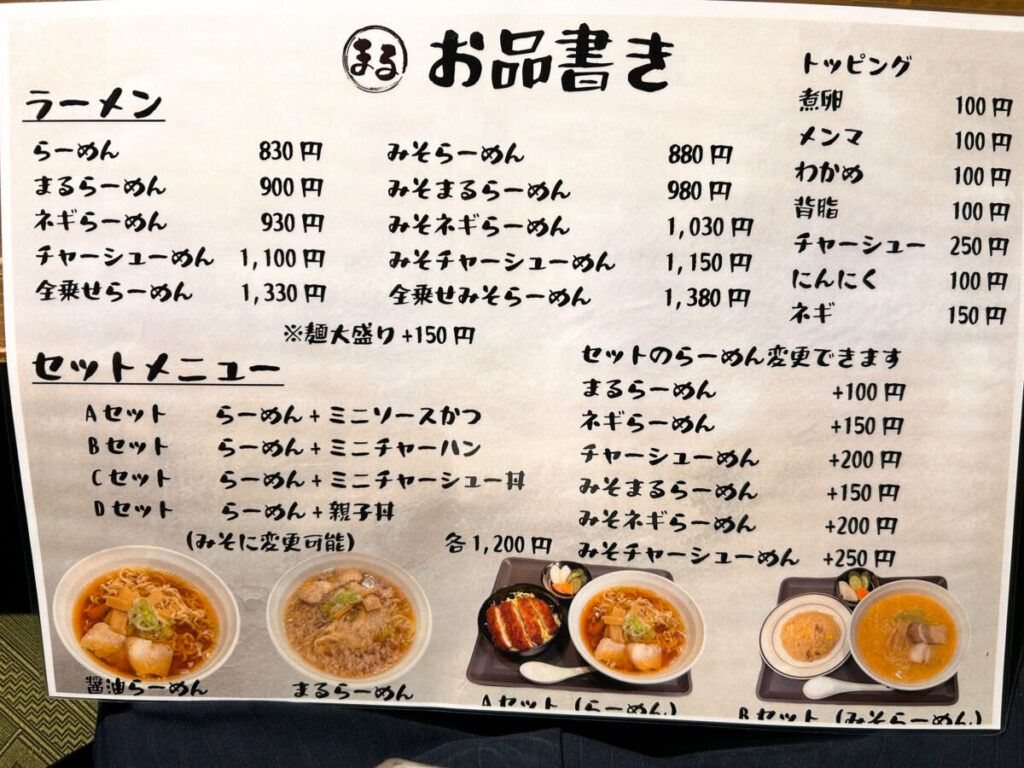 まる お品書き
ラーメン
らーめん 830円
まるらーめん 900円
ネギらーめん 930円
チャーシューめん 1,100円
全乗せらーめん 1,330円
みそらーめん 880円
みそまるらーめん 980円
みそネギらーめん 1,030円
みそチャーシューめん 1,150円
全乗せみそらーめん 1,380円
※麺大盛り+150円
トッピング
煮卵 100円
メンマ 100円
わかめ 100円
背脂 100円
チャーシュー 250円
にんにく 100円
ネギ 150円
セットメニュー
Aセット らーめん+ミニソースかつ
Bセット らーめん+ミニチャーハン
Cセット らーめん+ミニチャーシュー丼
Dセット らーめん+親子丼
(みそに変更可能) 各1,200円
セットのらーめん変更できます
まるらーめん +100円
ネギらーめん +150円
チャーシューめん +200円
みそまるらーめん +150円
みそネギらーめん +200円
みそチャーシューめん +250円
醤油らーめん
まるらーめん
Aセット(らーめん)
Bセット(みそらーめん)